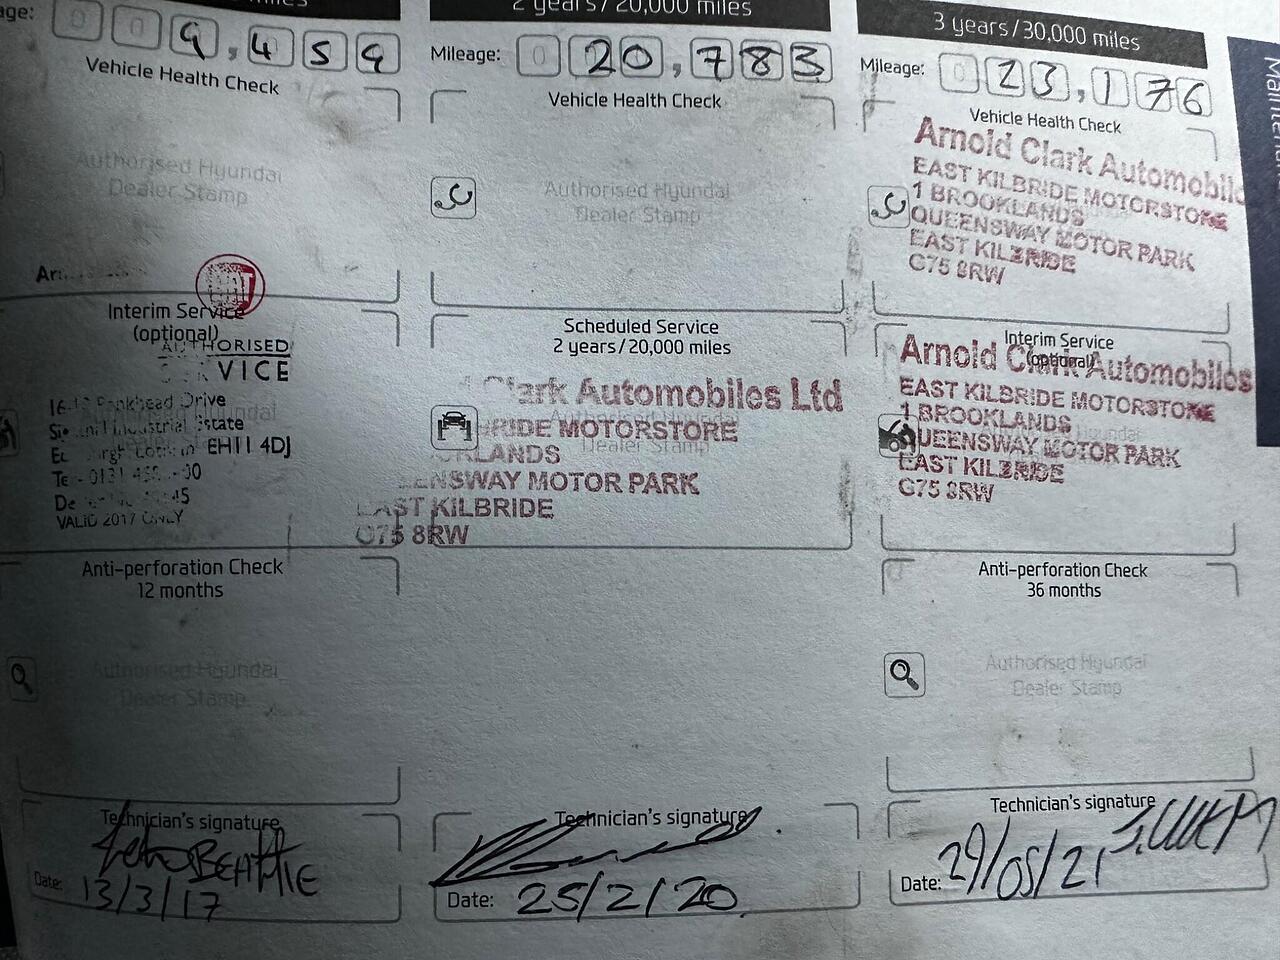 miles
age: 0 0 9,459
Vehicle Health Check
Authorised Hyundai
Dealer Stamp
Interim Service
(optional)
AUTHORISED
VICE
Drive
Industrial Estate
EH11 4DJ
VALID 2017 ONLY
Anti-perforation Check
12 months
Authorised Hyundai
Dealer Stamp
Technician's signature
BEATTIE
Date: 13/3/17
2 years/20,000 miles
Mileage: 0 20,783
Vehicle Health Check
Authorised Hyundai
Dealer Stamp
Scheduled Service
2 years/20,000 miles
Authorised Hyundai
Dealer Stamp
Clark Automobiles Ltd
BRIDE MOTORSTORE
KLANDS
ENSWAY MOTOR PARK
EAST KILBRIDE
G75 8RW
Technician's signature
Date: 25/2/20
3 years/30,000 miles
Mileage: 0 23,176
Vehicle Health Check
Arnold Clark Automobile
EAST KILBRIDE MOTORSTORE
1 BROOKLANDS
QUEENSWAY MOTOR PARK
EAST KILBRIDE
G75 8RW
Interim Service
(optional)
Arnold Clark Automobiles
EAST KILBRIDE MOTORSTORE
1 BROOKLANDS
QUEENSWAY MOTOR PARK
EAST KILBRIDE
G75 8RW
Anti-perforation Check
36 months
Authorised Hyundai
Dealer Stamp
Technician's signature
Date: 29/05/21